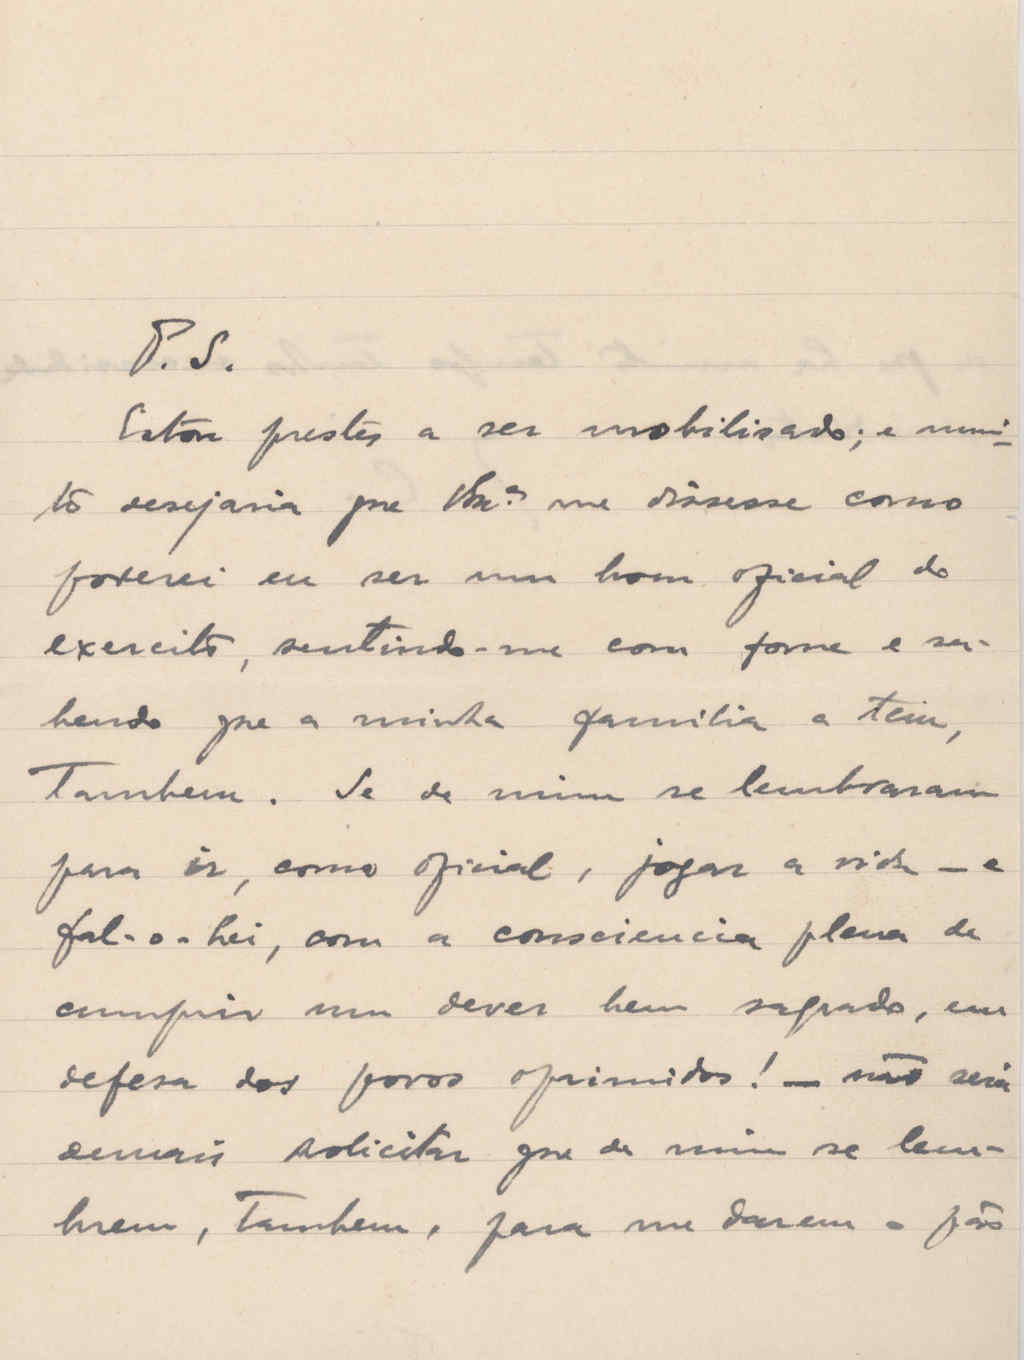 P. S.
Estou prestes a ser mobilisado; e mui-
to desejaria que V. Ex.ª me dissesse como
poderei eu ser um bom oficial do
exercito, sentindo-me com fome e sa-
bendo que a minha familia a tem,
tambem. Se de mim se lembraram
para ir, como oficial, jogar a vida — e
fal-o-hei, com a consciencia plena de
cumprir um dever bem sagrado, em
defesa dos povos oprimidos! — não será
demais solicitar que de mim se lem-
brem, tambem, para me darem o pão